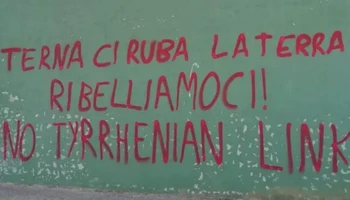 TERNA CI RUBA LA TERRA
RIBELLIAMOCI!!
NO TYRRHENIAN LINK